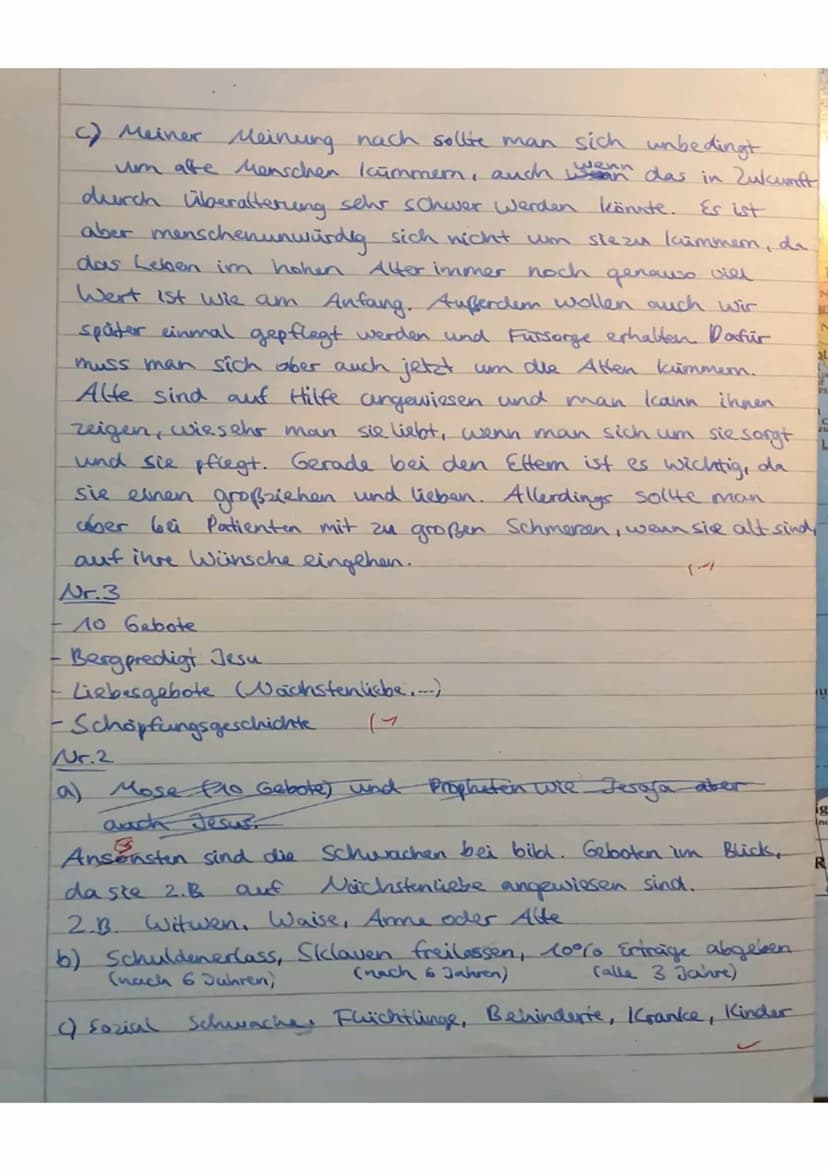 c) Meiner Meinung nach sollte man sich unbedingt
um alte Menschen kümmern, auch wenn das in Zukunft
durch Überalterung sehr schwer werden könnte. Es ist
aber menschenunwürdig sich nicht um sie zu kümmern, da
das Leben im hohen Alter immer noch genauso viel
Wert ist wie am Anfang. Außerdem wollen auch wir
später einmal gepflegt werden und Fürsorge erhalten. Dafür
muss man sich aber auch jetzt um die Alten kümmern.
Alte sind auf Hilfe angewiesen und man kann ihnen
zeigen, wie sehr man sie liebt, wenn man sich um sie sorgt
und sie pflegt. Gerade bei den Eltern ist es wichtig, da
sie einen großziehen und lieben. Allerdings sollte man
aber bei Patienten mit zu großen Schmerzen, wenn sie alt sind,
auf ihre Wünsche eingehen.
Nr.3
- 10 Gebote
- Bergpredigt Jesu
- Liebesgebote (Nächstenliebe,...)
- Schöpfungsgeschichte
Nr.2
a) Mose (10 Gebote) und Propheten wie Jesaja aber
auch Jesus.
Ansonsten sind die Schwachen bei bibl. Geboten im Blick,
da sie z.B auf Nächstenliebe angewiesen sind.
z.B. Witwen, Waise, Arme oder Alte
b) Schuldenerlass, Sklaven freilassen, 10% Erträge abgeben
(nach 6 Jahren) (nach 6 Jahren) (alle 3 Jahre)
c) Sozial Schwache, Flüchtlinge, Behinderte, Kranke, Kinder